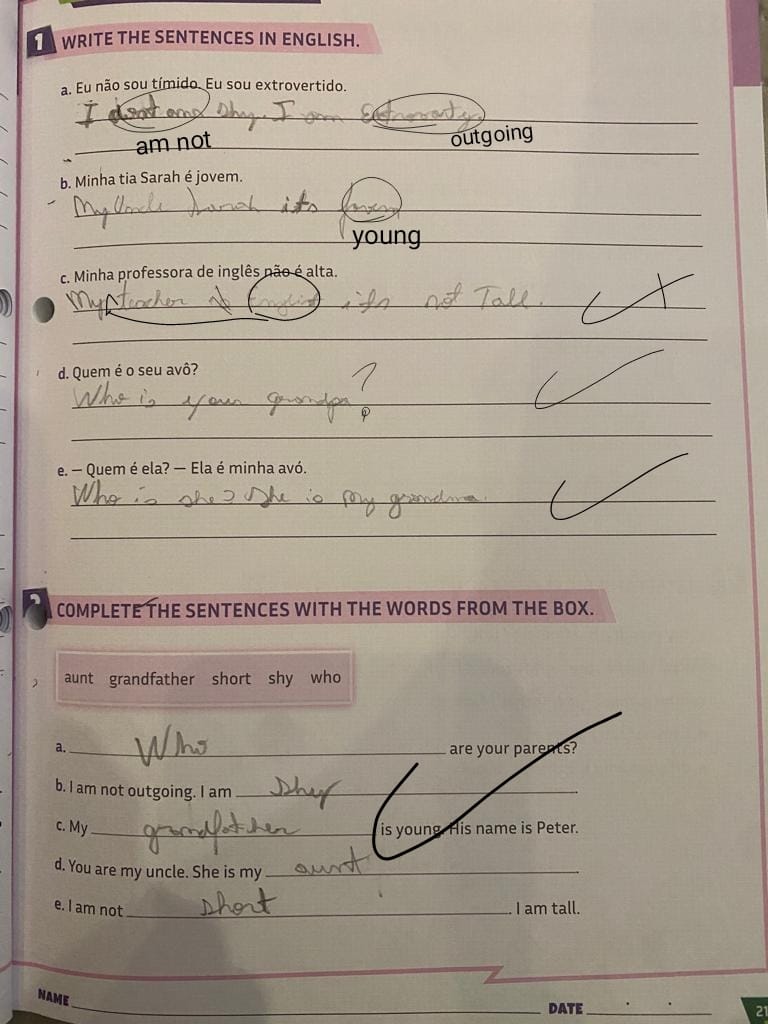 1 WRITE THE SENTENCES IN ENGLISH.
a. Eu não sou tímido. Eu sou extrovertido.
I dont am shy. I am
am not outgoing
b. Minha tia Sarah é jovem.
My Uncle Sarah its Jovem
young
c. Minha professora de inglês não é alta.
My teacher English its not Tall.
d. Quem é o seu avô?
Who is your grandpa?
e. – Quem é ela? – Ela é minha avó.
Who is she? She is my grandma.
2 COMPLETE THE SENTENCES WITH THE WORDS FROM THE BOX.
aunt grandfather short shy who
a. Who are your parents?
b. I am not outgoing. I am shy.
c. My grandfather is young. His name is Peter.
d. You are my uncle. She is my aunt.
e. I am not short. I am tall.
NAME DATE
21